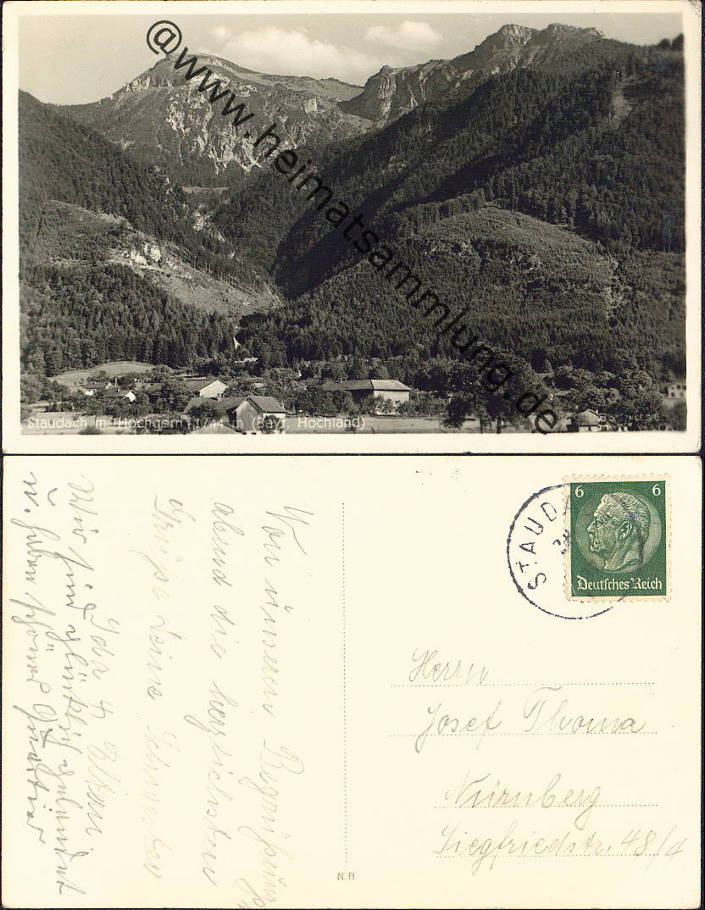 @www.heimatsammlung.de
Staudach m. Hochgern 1744 m (Bayr. Hochland)
STAUD
6 6
Deutsches Reich
Von unserem Begrüßungs
abend die herzlichsten
Grüße Deine Schwester
Ida
Wir sind glücklich gelandet
u. haben schönes Quartier
Herrn
Josef Thoma
Nürnberg
Siegfriedstr. 48/4
N B